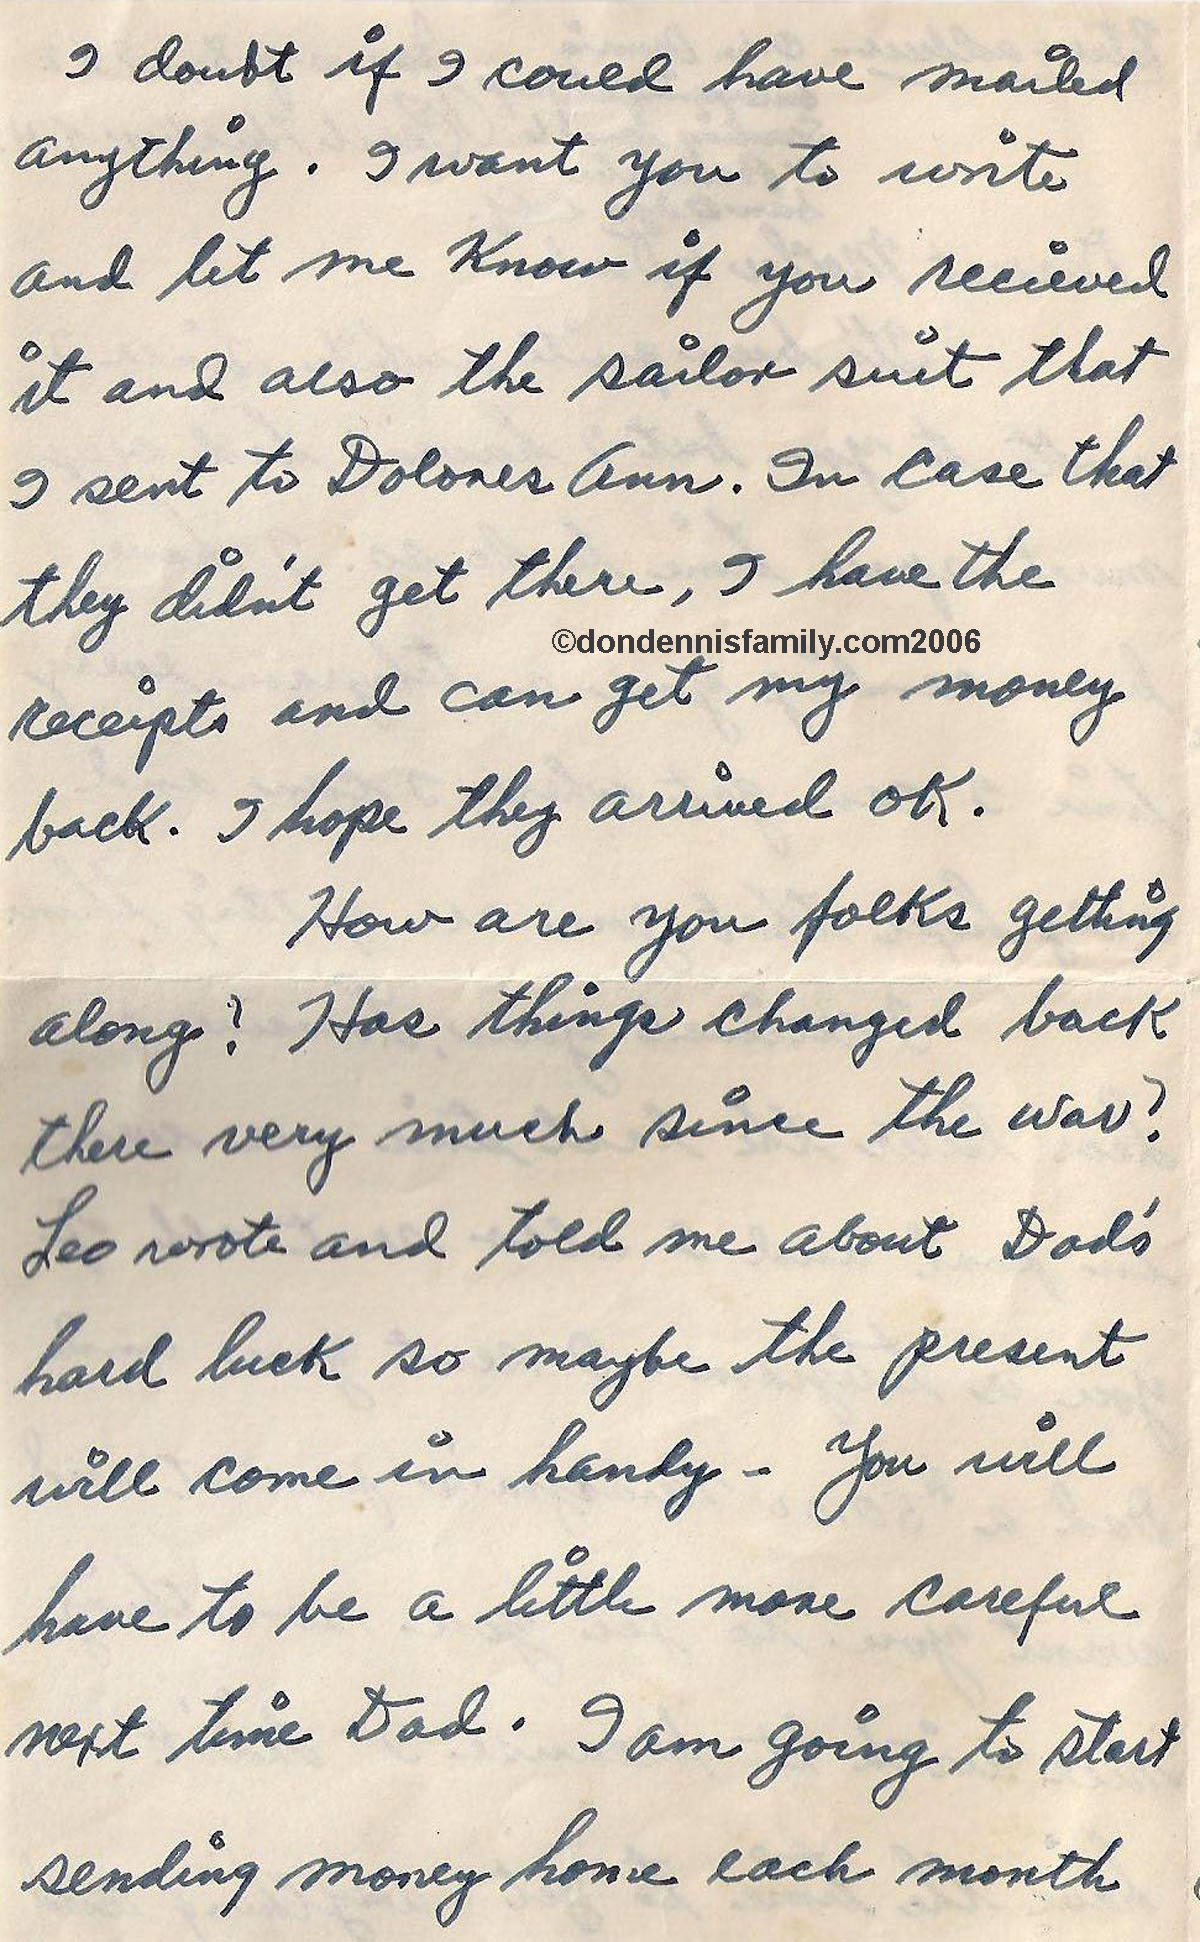 I doubt if I could have mailed
anything. I want you to write
and let me Know if you recieved
it and also the sailor suit that
I sent to Dolores Ann. In case that
they didn't get there, I have the
©dondennisfamily.com2006
receipts and can get my money
back. I hope they arrived OK.
How are you folks getting
along? Has things changed back
there very much since the war?
Leo wrote and told me about Dad's
hard luck so maybe the present
will come in handy - You will
have to be a little more careful
next time Dad. I am going to start
sending money home each month